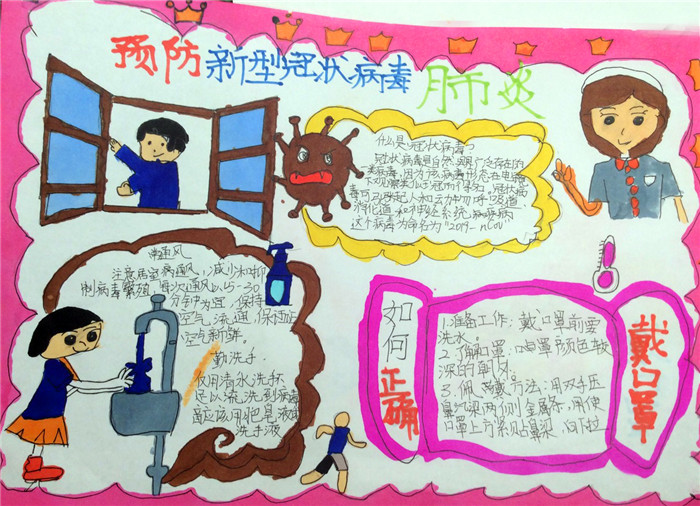 预防新型冠状病毒肺炎
什么是冠状病毒?
冠状病毒是自然界广泛存在的
一类病毒,因为该病毒形态在电镜
下观察类似王冠而得名。冠状病
毒可引起人和动物呼吸道、
消化道和神经系统疾病
这个病毒为命名为"2019-nCoV"
通风
注意居室病通风,减少和抑
制病毒繁殖。每次通风以15-30
分钟为宜,保持
空气流通,保证
空气新鲜。
勤洗手
仅用清水洗手
足以洗到病毒
应该用肥皂液
洗手液
如何正确
1.准备工作:戴口罩前要
洗水。
2.确口罩:口罩颜色较
深的
3.佩戴方法:用双手压
鼻梁两侧金属条,用使
口罩上方紧贴鼻梁,向下拉
戴口罩